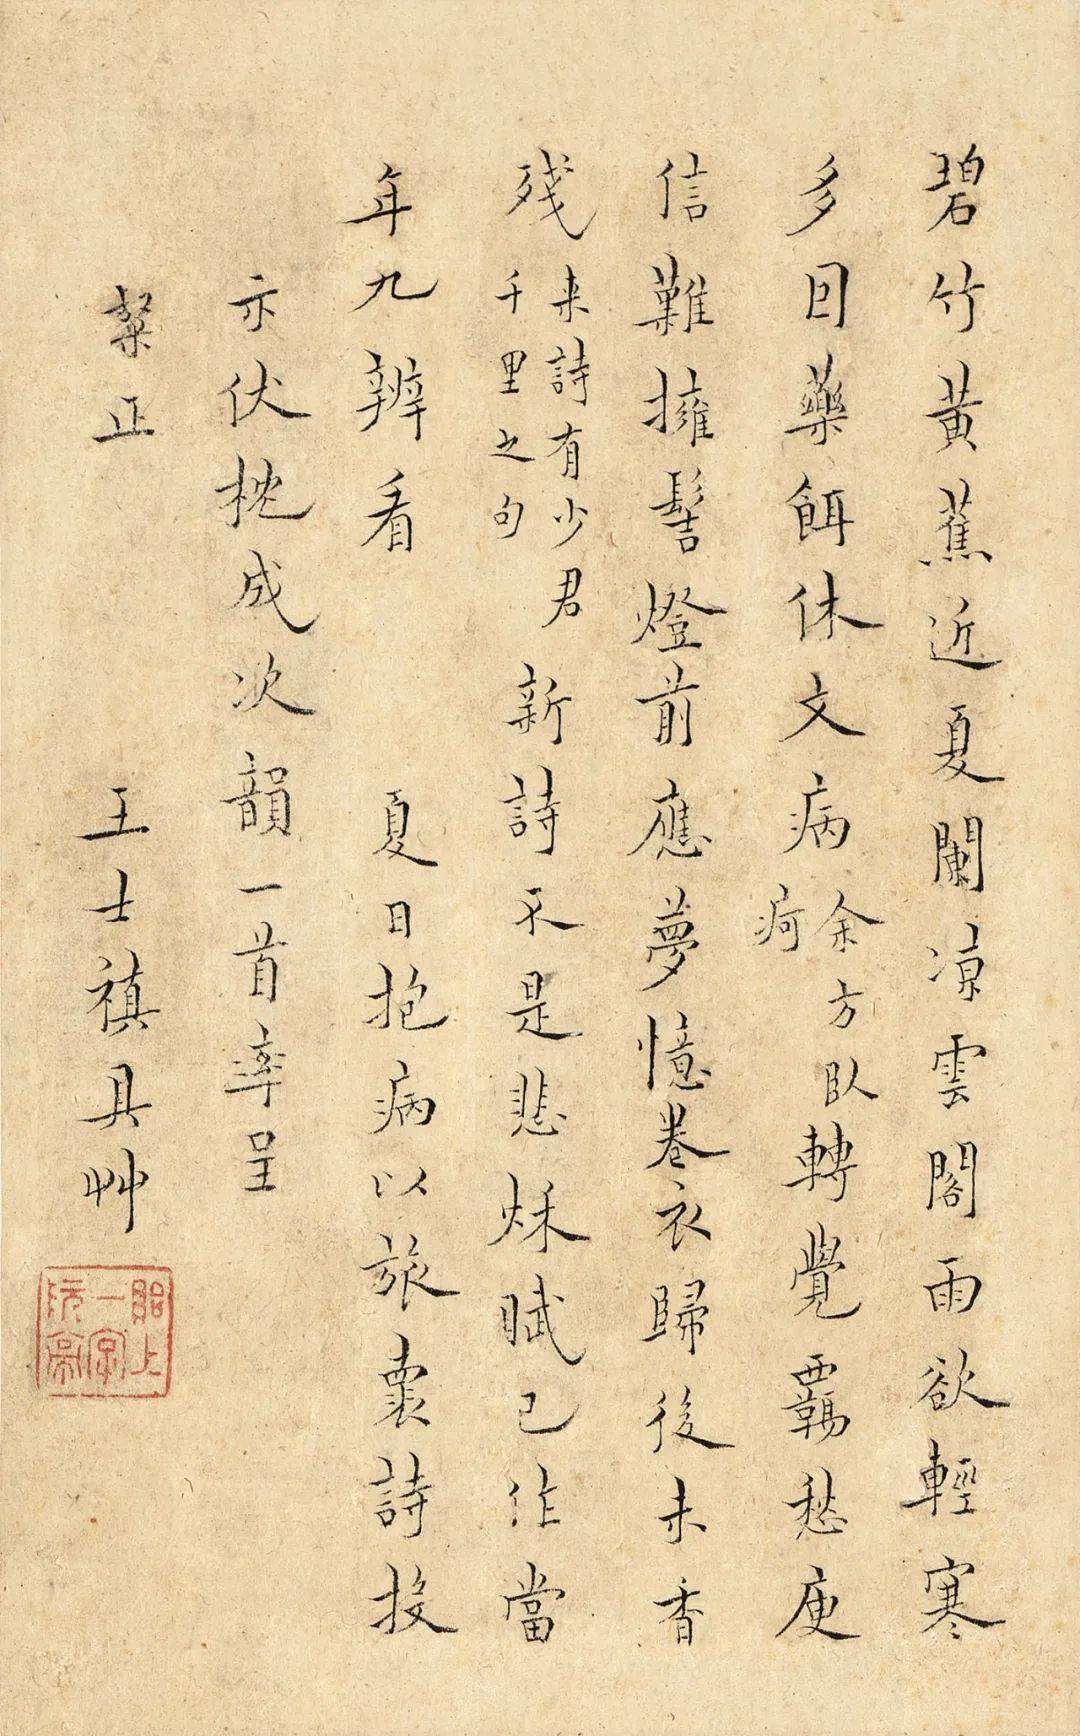 碧竹黃蕉近夏闌凉雲閣雨欲輕寒
多囙藥餌休文病余方臥疴轉覺羈愁庾
信難擁髻燈前應夢憶卷衣歸後未香
殘来詩有少君千里之句新詩不是悲秌賦已作當
年九辨看 夏日抱病以旅褱詩投
示伏枕成次韻一首率呈
粲正 王士禛具艸
貽上一字阮亭